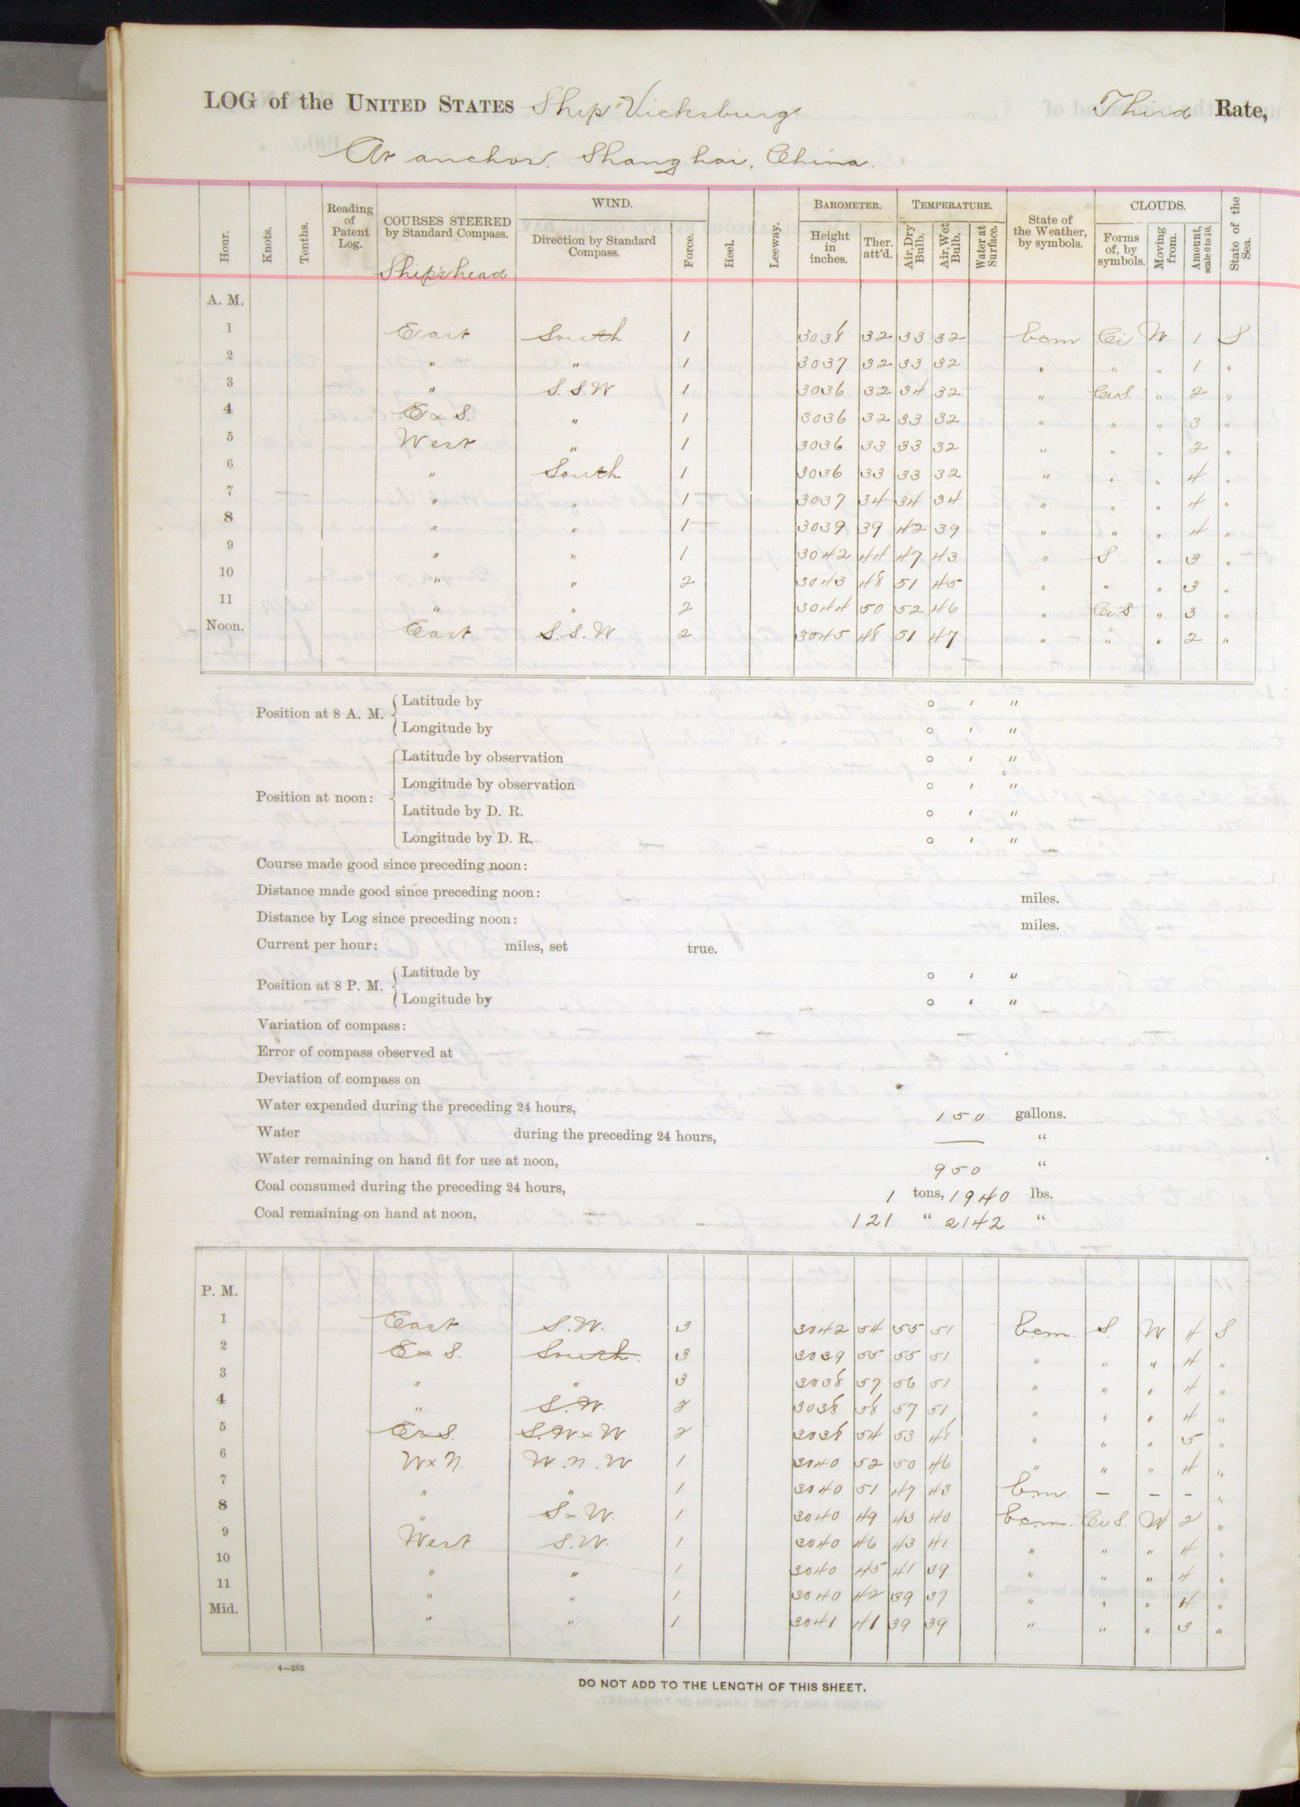 LOG of the UNITED STATES Ship Vicksburg Third Rate,
At anchor. Shanghai, China.
Hour. Knots. Tenths. Reading of Patent Log. COURSES STEERED by Standard Compass. WIND. Direction by Standard Compass. Force. Heel. Leeway. BAROMETER. Height in inches. Ther. att'd. TEMPERATURE. Air, Dry Bulb. Air, Wet Bulb. Water at Surface. State of the Weather, by symbols. CLOUDS. Forms of, by symbols. Moving from. Amount, scale 0 to 10. State of the Sea.
Ship's head
A. M.
1 East South 1 3038 32 33 32 bcm Ci W 1 S
2 " " 1 3037 32 33 32 " " " 1 "
3 " S.S.W 1 3036 32 34 32 " Ci.S. " 2 "
4 ExS. " 1 3036 32 33 32 " " " 3 "
5 West " 1 3036 33 33 32 " " " 2 "
6 " South 1 3036 33 33 32 " " " 4 "
7 " " 1 3037 34 34 34 " " " 4 "
8 " " 1 3039 39 42 39 " " " 4 "
9 " " 1 3042 44 47 43 " S " 3 "
10 " " 2 3043 48 51 45 " " " 3 "
11 " " 2 3044 50 52 46 " Ci.S. " 3 "
Noon. East S.S.W 2 3045 48 51 47 " " " 2 "
Position at 8 A. M. Latitude by ° ' "
Longitude by ° ' "
Position at noon: Latitude by observation ° ' "
Longitude by observation ° ' "
Latitude by D. R. ° ' "
Longitude by D. R. ° ' "
Course made good since preceding noon:
Distance made good since preceding noon: miles.
Distance by Log since preceding noon: miles.
Current per hour: miles, set true.
Position at 8 P. M. Latitude by ° ' "
Longitude by ° ' "
Variation of compass:
Error of compass observed at
Deviation of compass on
Water expended during the preceding 24 hours, 150 gallons.
Water during the preceding 24 hours, — "
Water remaining on hand fit for use at noon, 950 "
Coal consumed during the preceding 24 hours, 1 tons, 1940 lbs.
Coal remaining on hand at noon, 121 " 2142 "
P. M.
1 East S.W. 3 3042 54 55 51 bcm. S. W 4 S
2 ExS. South. 3 3039 55 55 51 " " " 4 "
3 " " 3 3038 57 56 51 " " " 4 "
4 " S.W. 2 3038 58 57 51 " " " 4 "
5 ExS. S.WxW 2 3038 54 53 48 " " " 5 "
6 WxN. W.N.W 1 3040 52 50 46 " " " 4 "
7 " " 1 3040 51 47 43 bm — — — "
8 " SxW. 1 3040 49 43 40 bcm. Ci S. W 2 "
9 West S.W. 1 3040 46 43 41 " " " 4 "
10 " " 1 3040 45 41 39 " " " 4 "
11 " " 1 3040 42 39 37 " " " 4 "
Mid. " " 1 3041 41 39 39 " " " 3 "
4—265
DO NOT ADD TO THE LENGTH OF THIS SHEET.